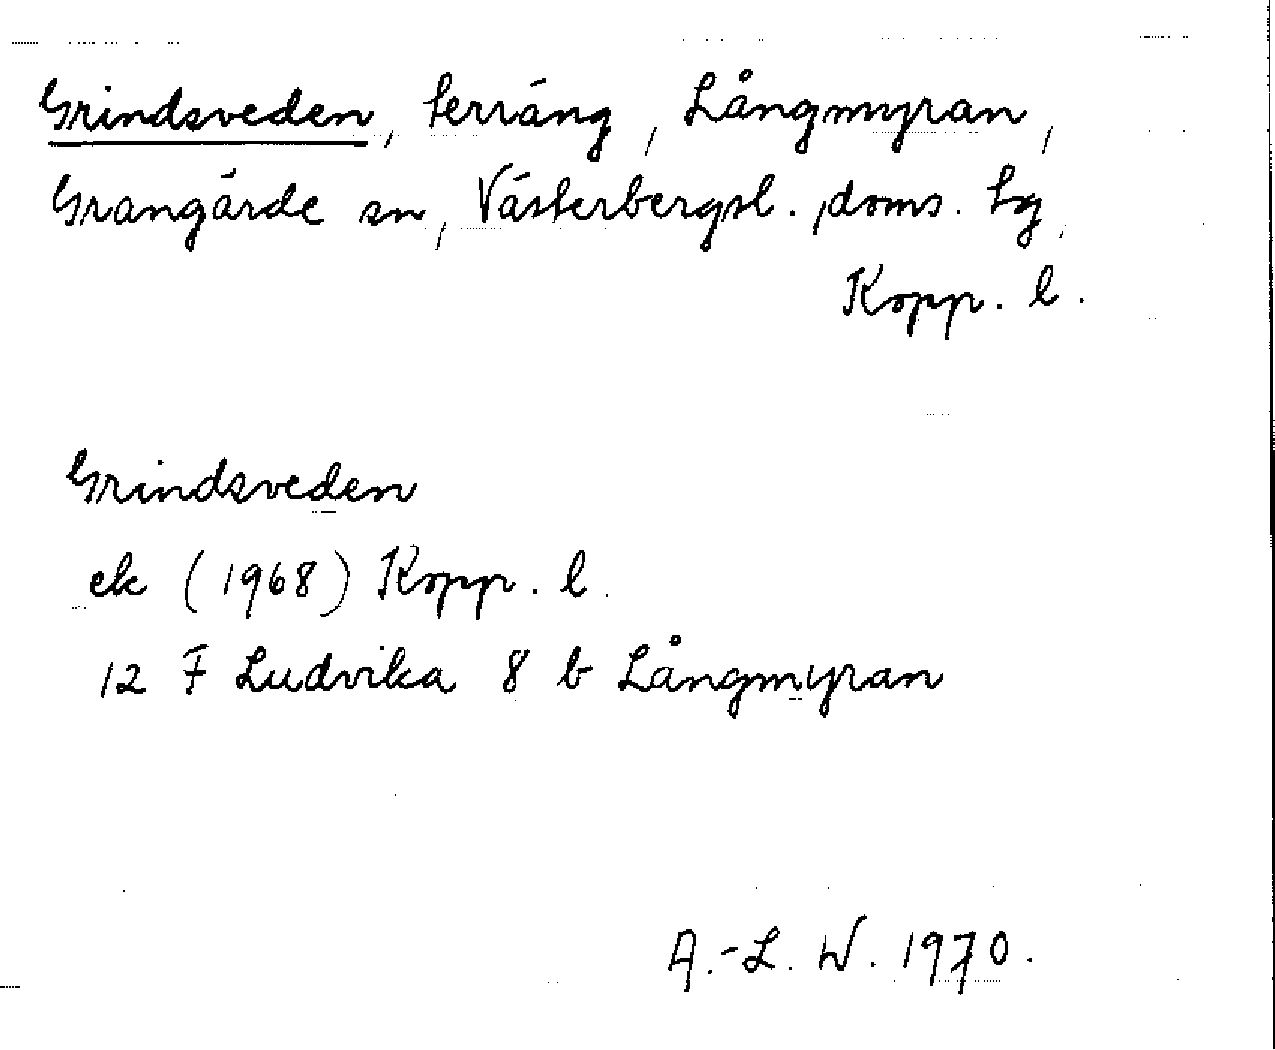 Grindsveden, terräng, Långmyran,
Grangärde sn, Västerbergsl., doms. tg,
Kopp. l.
Grindsveden
ek (1968) Kopp. l.
12 F Ludvika 8 b Långmyran
A.-L. W. 1970.